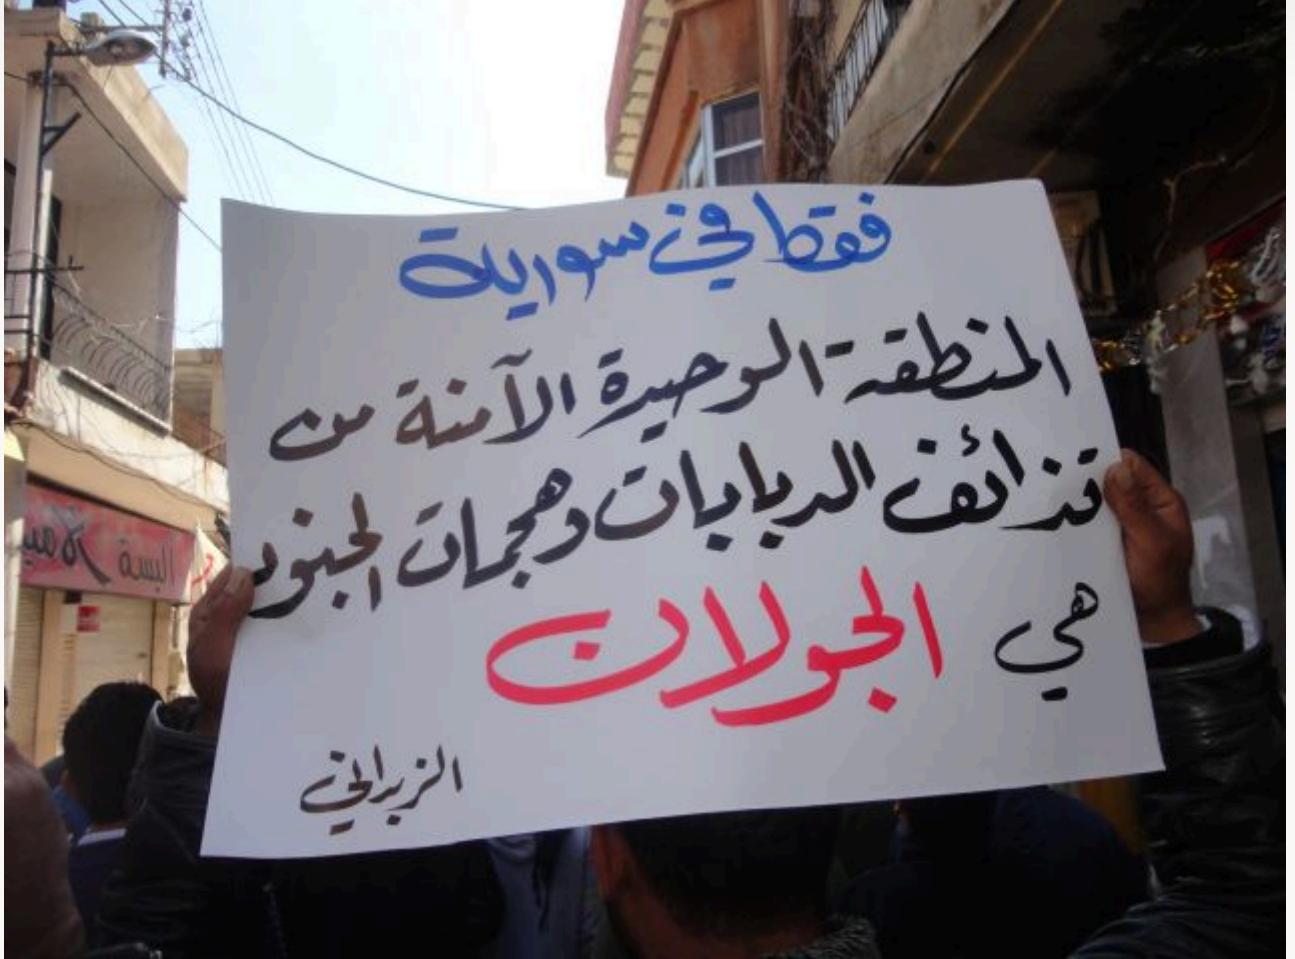 فقط في سورية
المنطقة الوحيدة الآمنة من
قذائف الدبابات وهجمات الجنود
هي الجولان
الزبداني
البسة الامي